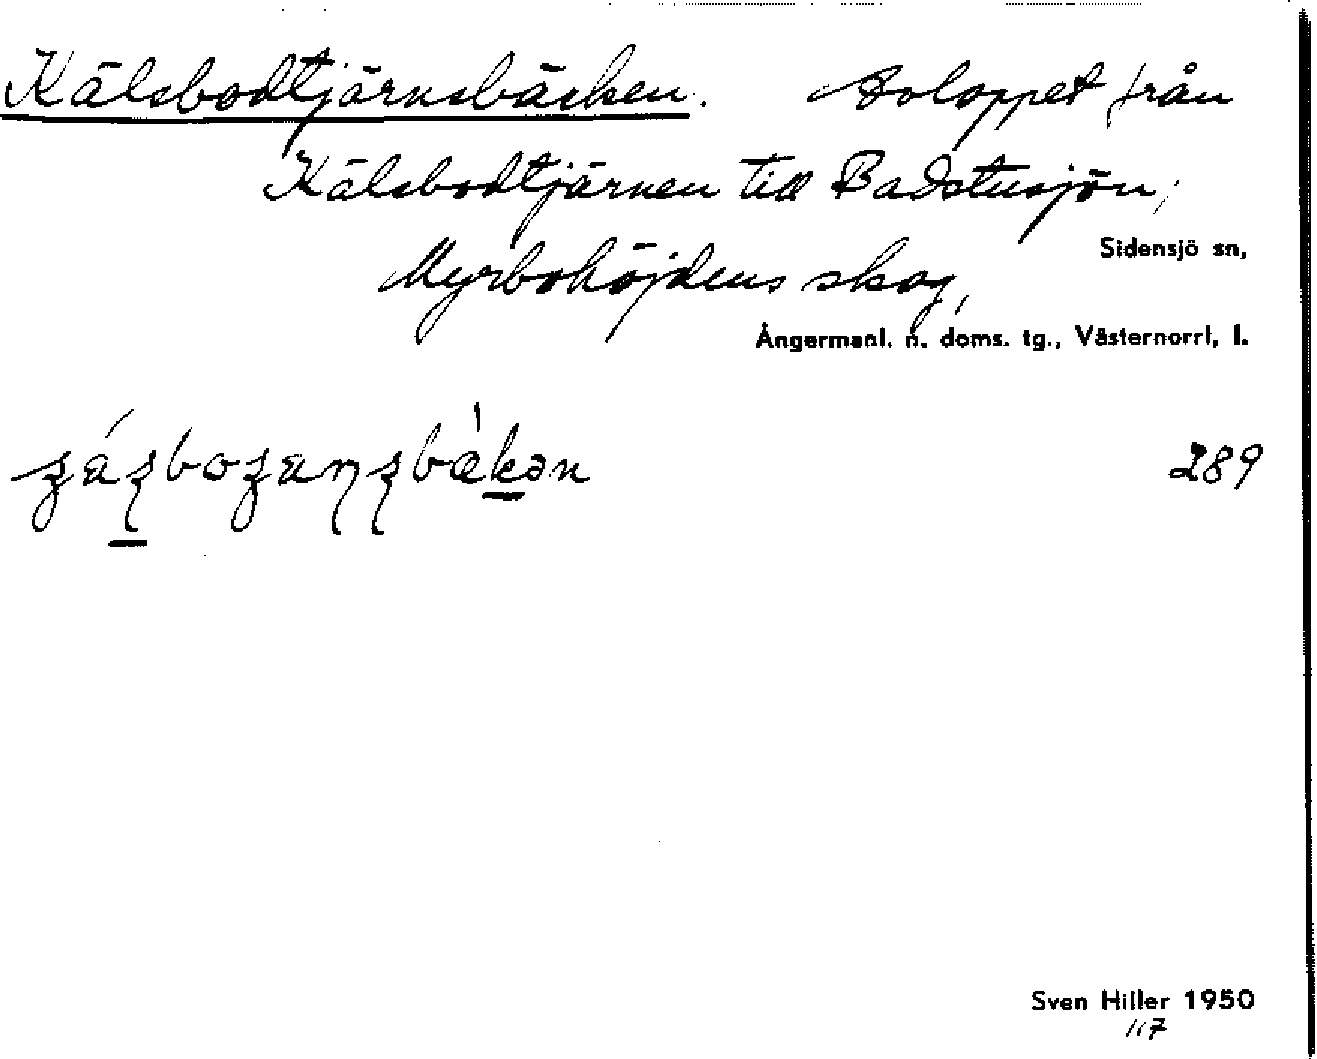 Kälsbodtjärnsbäcken. Avloppet från
Kälsbodtjärnen till Badstusjön,
Sidensjö sn,
Myrbohöjdens skog,
Ångermanl. n. doms. tg., Västernorrl, l.
289
Sven Hiller 1950
117